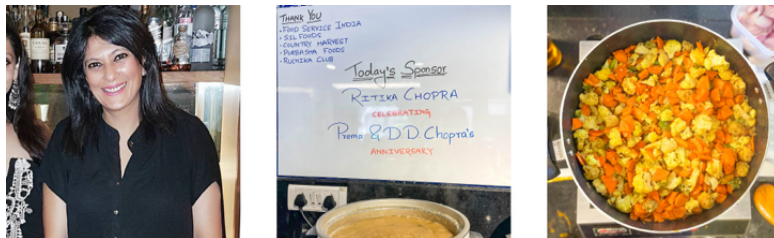 THANK YOU
• FOOD SERVICE INDIA
• SIL FOODS
• COUNTRY HARVEST
• PURBASHA FOODS
• RUCHIKA CLUB
Today's Sponsor
RITIKA CHOPRA
CELEBRATING
Prema & D.D. Chopra's
ANNIVERSARY